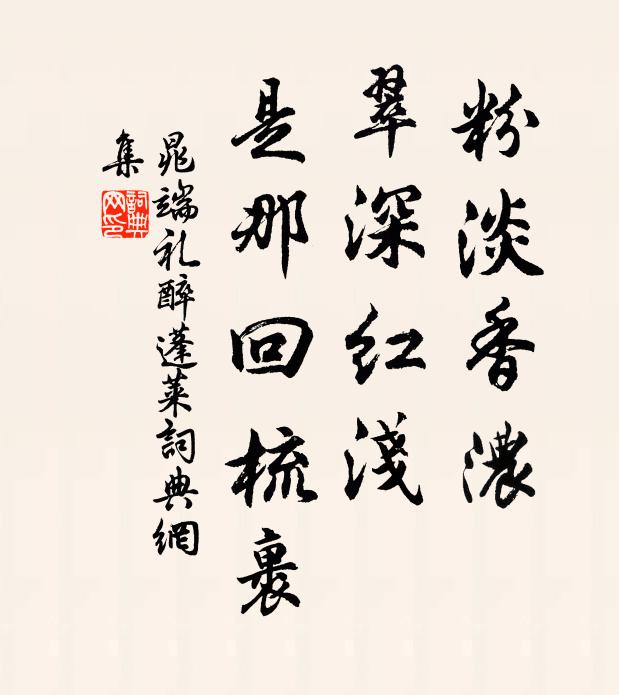 粉淡香濃
翠深红淺
是那回梳裹
晁端礼醉蓬莱詞典網
集
詞典
网印